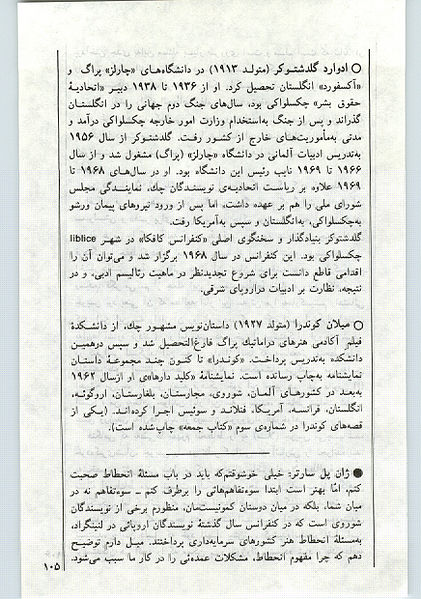 ○ ادوارد گلدشتوکر (متولد ۱۹۱۳) در دانشگاه‌های «چارلز» پراگ و
«آکسفورد» انگلستان تحصیل کرد. او از ۱۹۳۶ تا ۱۹۳۸ دبیر «اتحادیهٔ
حقوق بشر» چکسلواکی بود، سال‌های جنگ دوم جهانی را در انگلستان
گذراند و پس از جنگ به‌استخدام وزارت امور خارجه چکسلواکی درآمد و
مدتی به‌مأموریت‌های خارج از کشور رفت. گلدشتوکر از سال ۱۹۵۶
به‌تدریس ادبیات آلمانی در دانشگاه «چارلز» (پراگ) مشغول شد و از سال
۱۹۶۶ تا ۱۹۶۹ نایب رئیس این دانشگاه بود. او در سال‌های ۱۹۶۸ تا
۱۹۶۹ علاوه بر ریاست اتحادیه‌ی نویسندگان چك، نمایندگی مجلس
شورای ملی را هم بر عهده داشت، اما پس از ورود نیروهای پیمان ورشو
به‌چکسلواکی، به‌انگلستان و سپس به‌آمریکا رفت.
گلدشتوکر بنیادگذار و سخنگوی اصلی «کنفرانس کافکا» در شهر liblice
چکسلواکی بود. این کنفرانس در سال ۱۹۶۸ برگزار شد و می‌توان آن را
اقدامی قاطع دانست برای شروع تجدیدنظر در ماهیت رئالیسم ادبی، و در
نتیجه، نظارت بر ادبیات دراروپای شرقی.
○ میلان کوندرا (متولد ۱۹۲۷) داستان‌نویس مشهور چك، از دانشکدهٔ
فیلم آکادمی هنرهای دراماتیك پراگ فارغ‌التحصیل شد و سپس درهمین
دانشکده به‌تدریس پرداخت. «کوندرا» تا کنون چند مجموعهٔ داستان
نمایشنامه به‌چاپ رسانده است. نمایشنامهٔ «کلید دارها»ی او ازسال ۱۹۶۲
به‌بعد در کشورهای آلمان، شوروی، مجارستان، بلغارستان، اروگوئه،
انگلستان، فرانسه، آمریکا، فنلاند و سوئیس اجرا کرده‌اند. (یکی از
قصه‌های کوندرا در شماره‌ی سوم «کتاب جمعه» چاپ‌شده است).
● ژان پل سارتر: خیلی خوشوقتم‌که باید در باب مسئلهٔ انحطاط صحبت
کنم. امّا بهتر است ابتدا سوءتفاهم‌هائی را برطرف کنم ــ سوءتفاهم نه در
میان شما، بلکه در میان دوستان کمونیست‌مان، منظورم برخی از نویسندگان
شوروی است که در کنفرانس سال گذشتهٔ نویسندگان اروپائی در لنینگراد،
به‌مسئلهٔ انحطاط هنر کشورهای سرمایه‌داری پرداختند. میل دارم توضیح
دهم که چرا مفهوم انحطاط، مشکلات عمده‌ئی را در کار ما سبب می‌شود.
۱۰۵